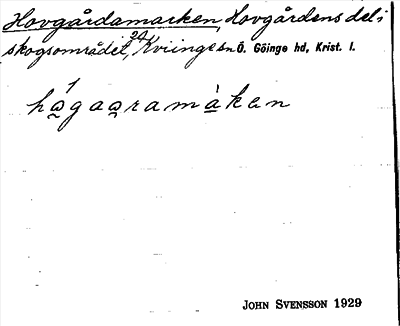 Hovgårdamarken, Hovgårdens del i
skogsområdet, 24 Kviinge sn Ö. Göinge hd, Krist. l.
hågaaramàken
JOHN SVENSSON 1929